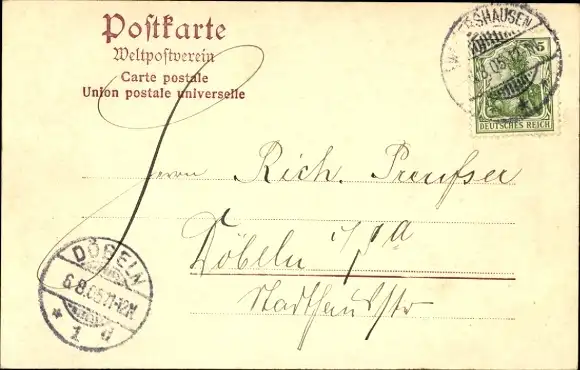 Postkarte
Weltpostverein
Carte postale
Union postale universelle
SHAUSEN
8.05
5
DEUTSCHES REICH
Herrn Rich. Preufser
Döbeln i/Sa
Stadthausstr
DÖBELN
6.8.05.11-12V.
* 1 d